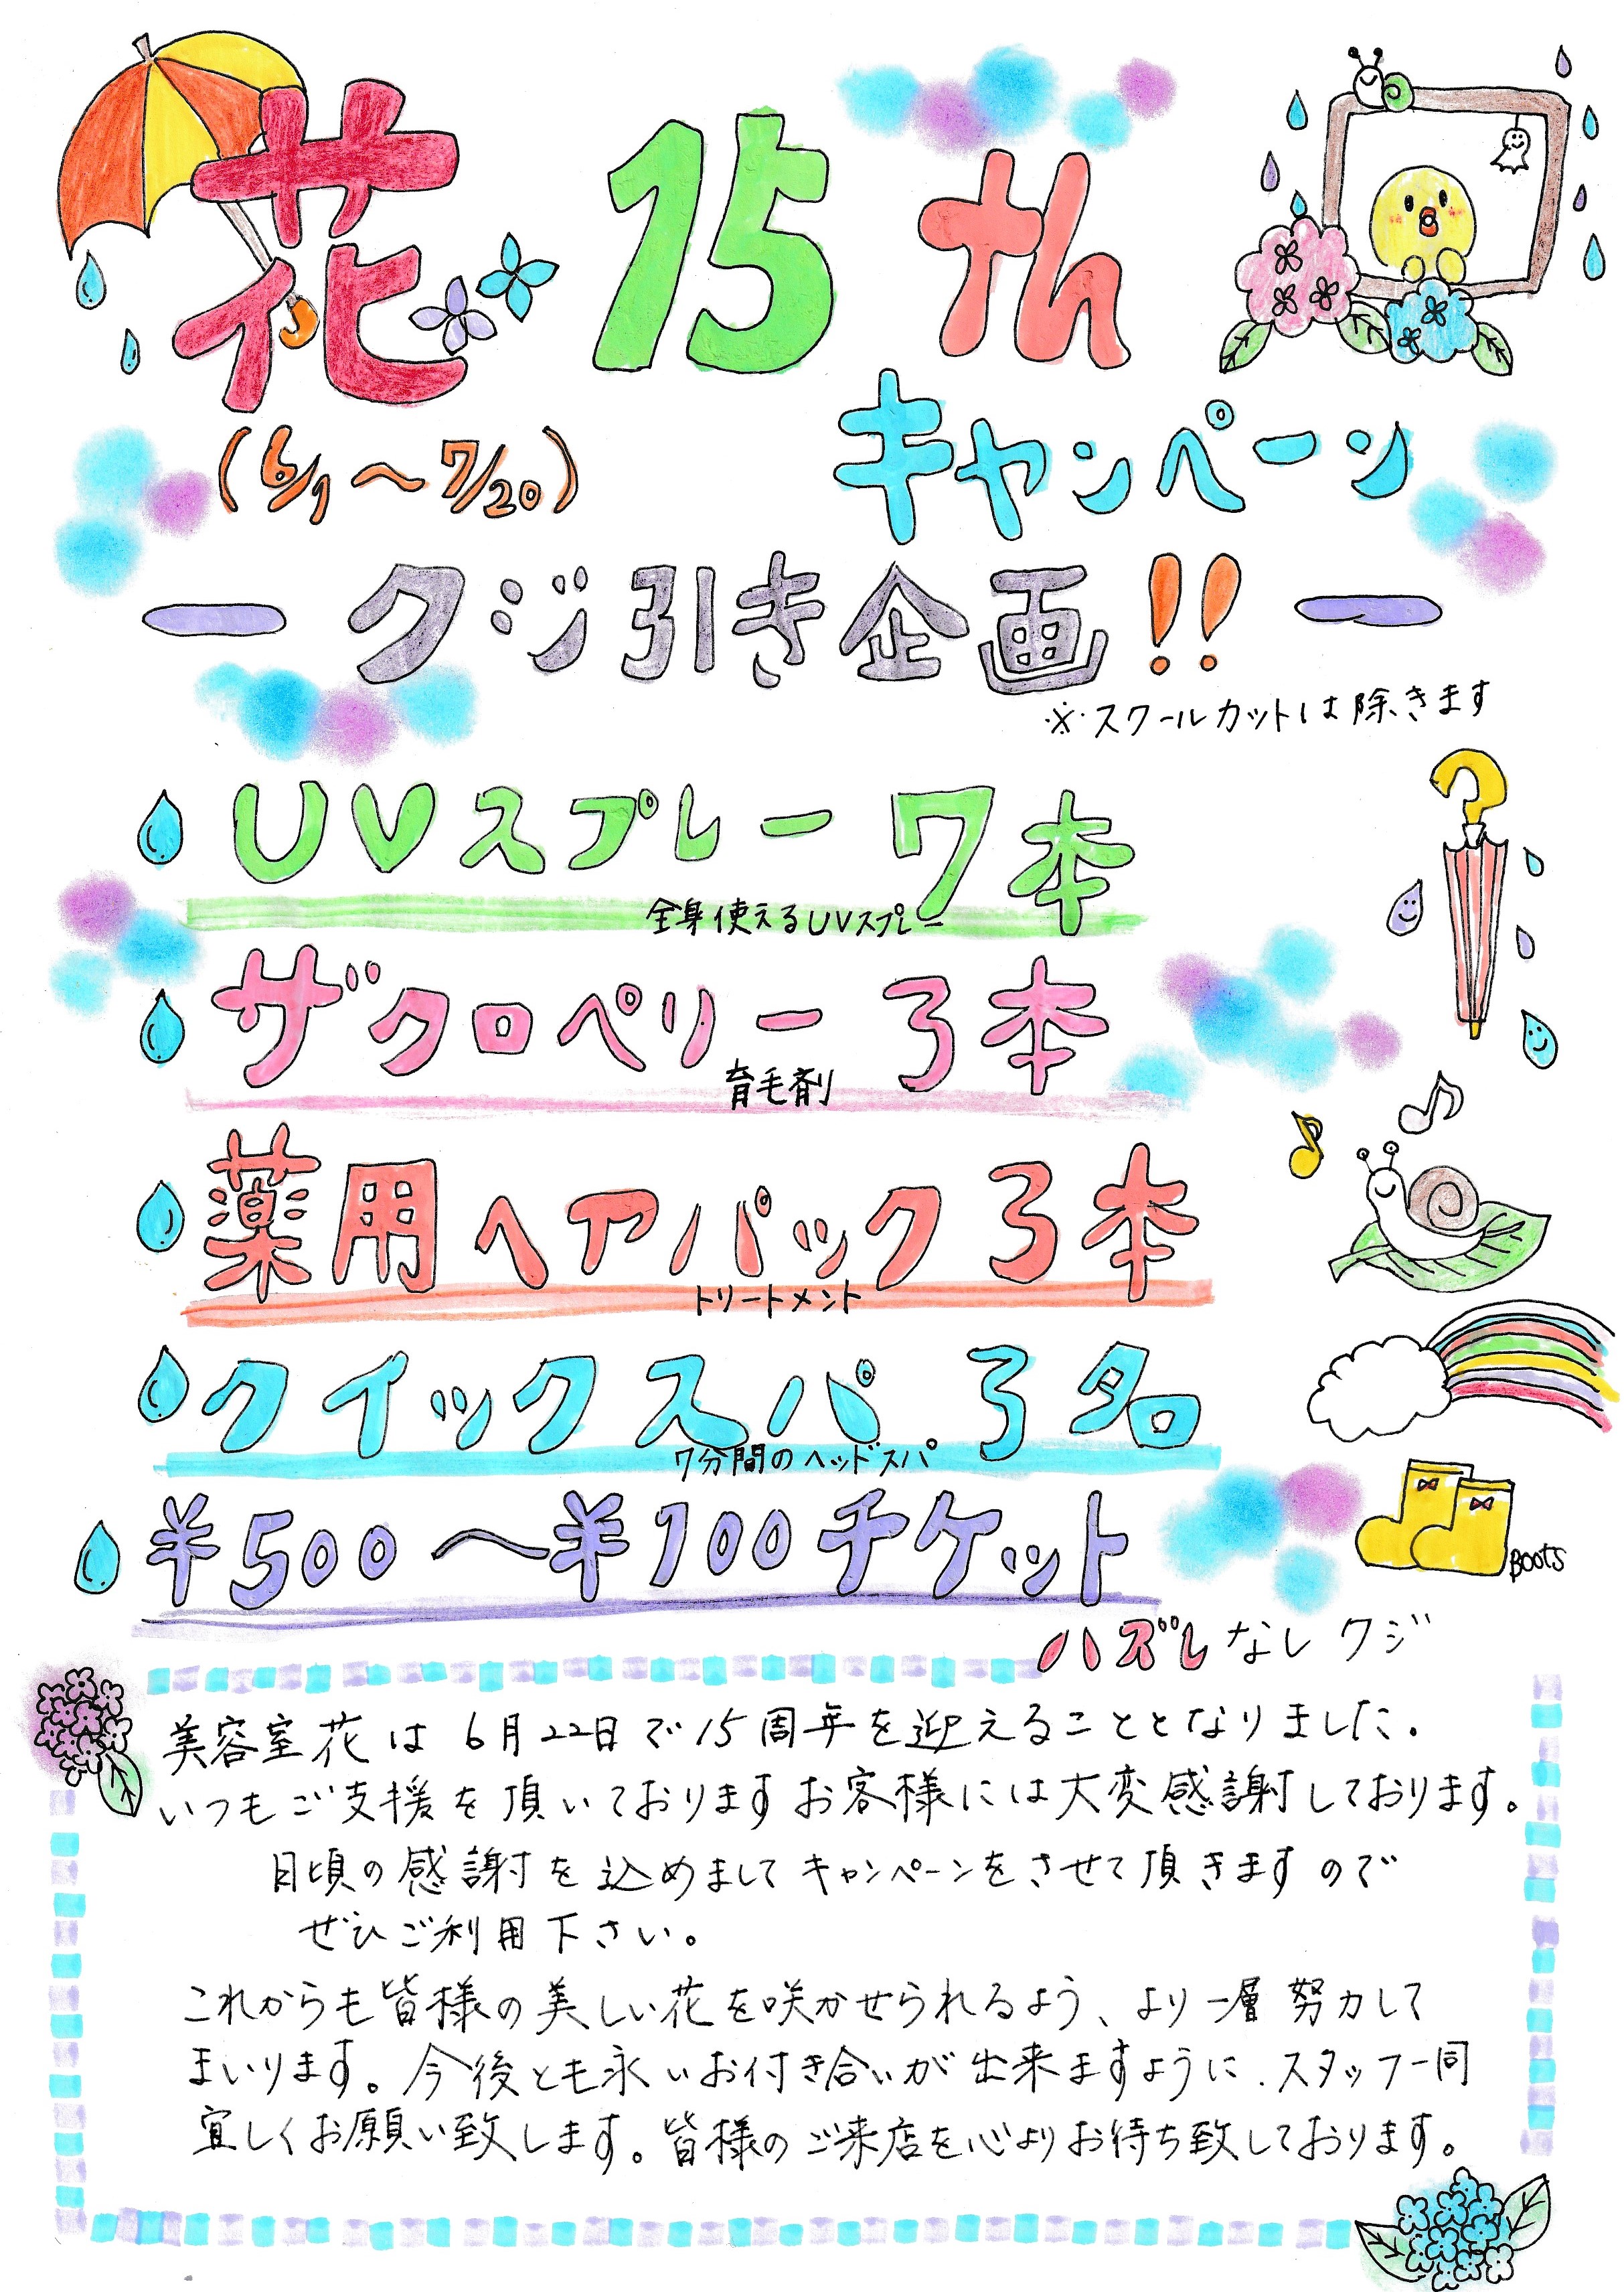 花 15th
キャンペーン
(6/1〜7/20)
ークジ引き企画!!ー
※スクールカットは除きます
UVスプレー 7本
全身使えるUVスプレー
ザクロペリー 3本
育毛剤
薬用ヘアパック 3本
トリートメント
クイックスパ 3名
7分間のヘッドスパ
¥500〜¥100チケット
BOOTS
ハズレなしクジ
美容室花は6月22日で15周年を迎えることとなりました。
いつもご支援を頂いておりますお客様には大変感謝しております。
日頃の感謝を込めましてキャンペーンをさせて頂きますので
ぜひご利用下さい。
これからも皆様の美しい花を咲かせられるよう、より一層努力して
まいります。今後とも永いお付き合いが出来ますように、スタッフ一同
宜しくお願い致します。皆様のご来店を心よりお待ち致しております。